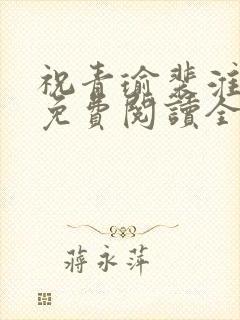 祝青瑜裴淮
免費閱讀全
蔣永萍